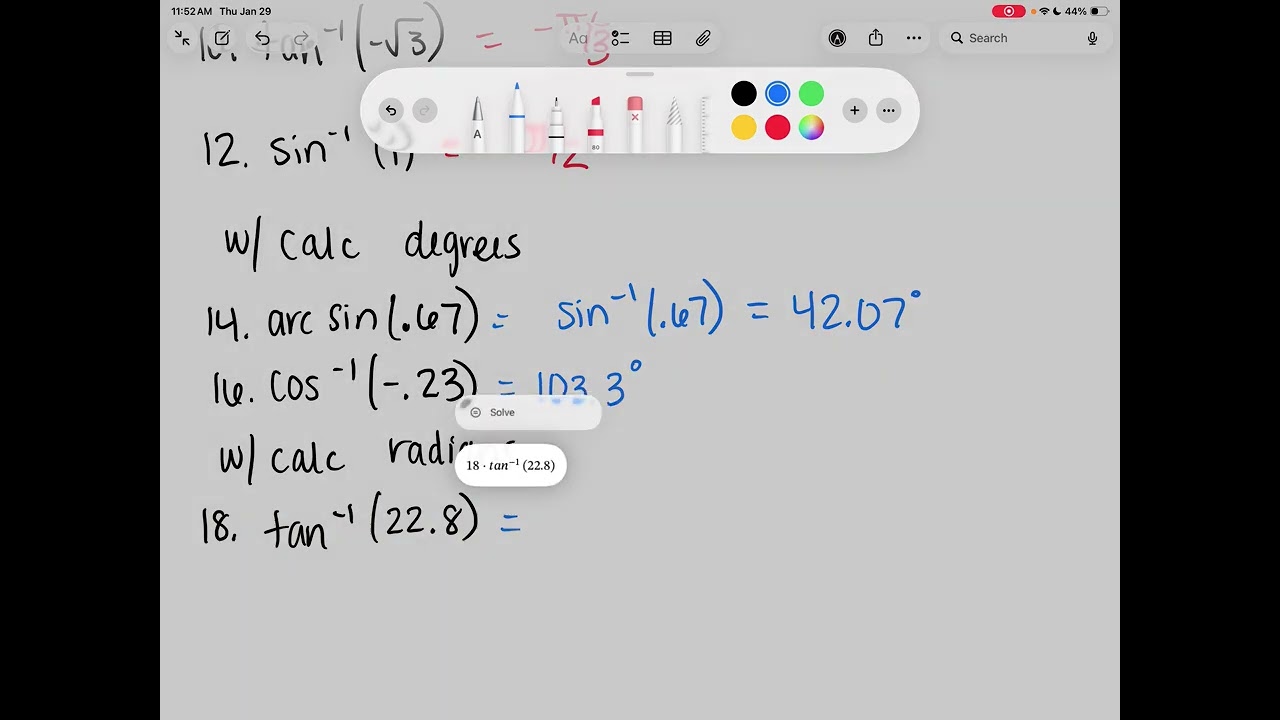 11:52AM Thu Jan 29
44%
tan⁻¹(-√3) = -π/3
Aa
Search
A
80
12. sin⁻¹(1) =
w/ calc degrees
14. arcsin(.67) = sin⁻¹(.67) = 42.07°
16. cos⁻¹(-.23) = 103.3°
Solve
w/ calc radians
18 · tan⁻¹ (22.8)
18. tan⁻¹(22.8) =